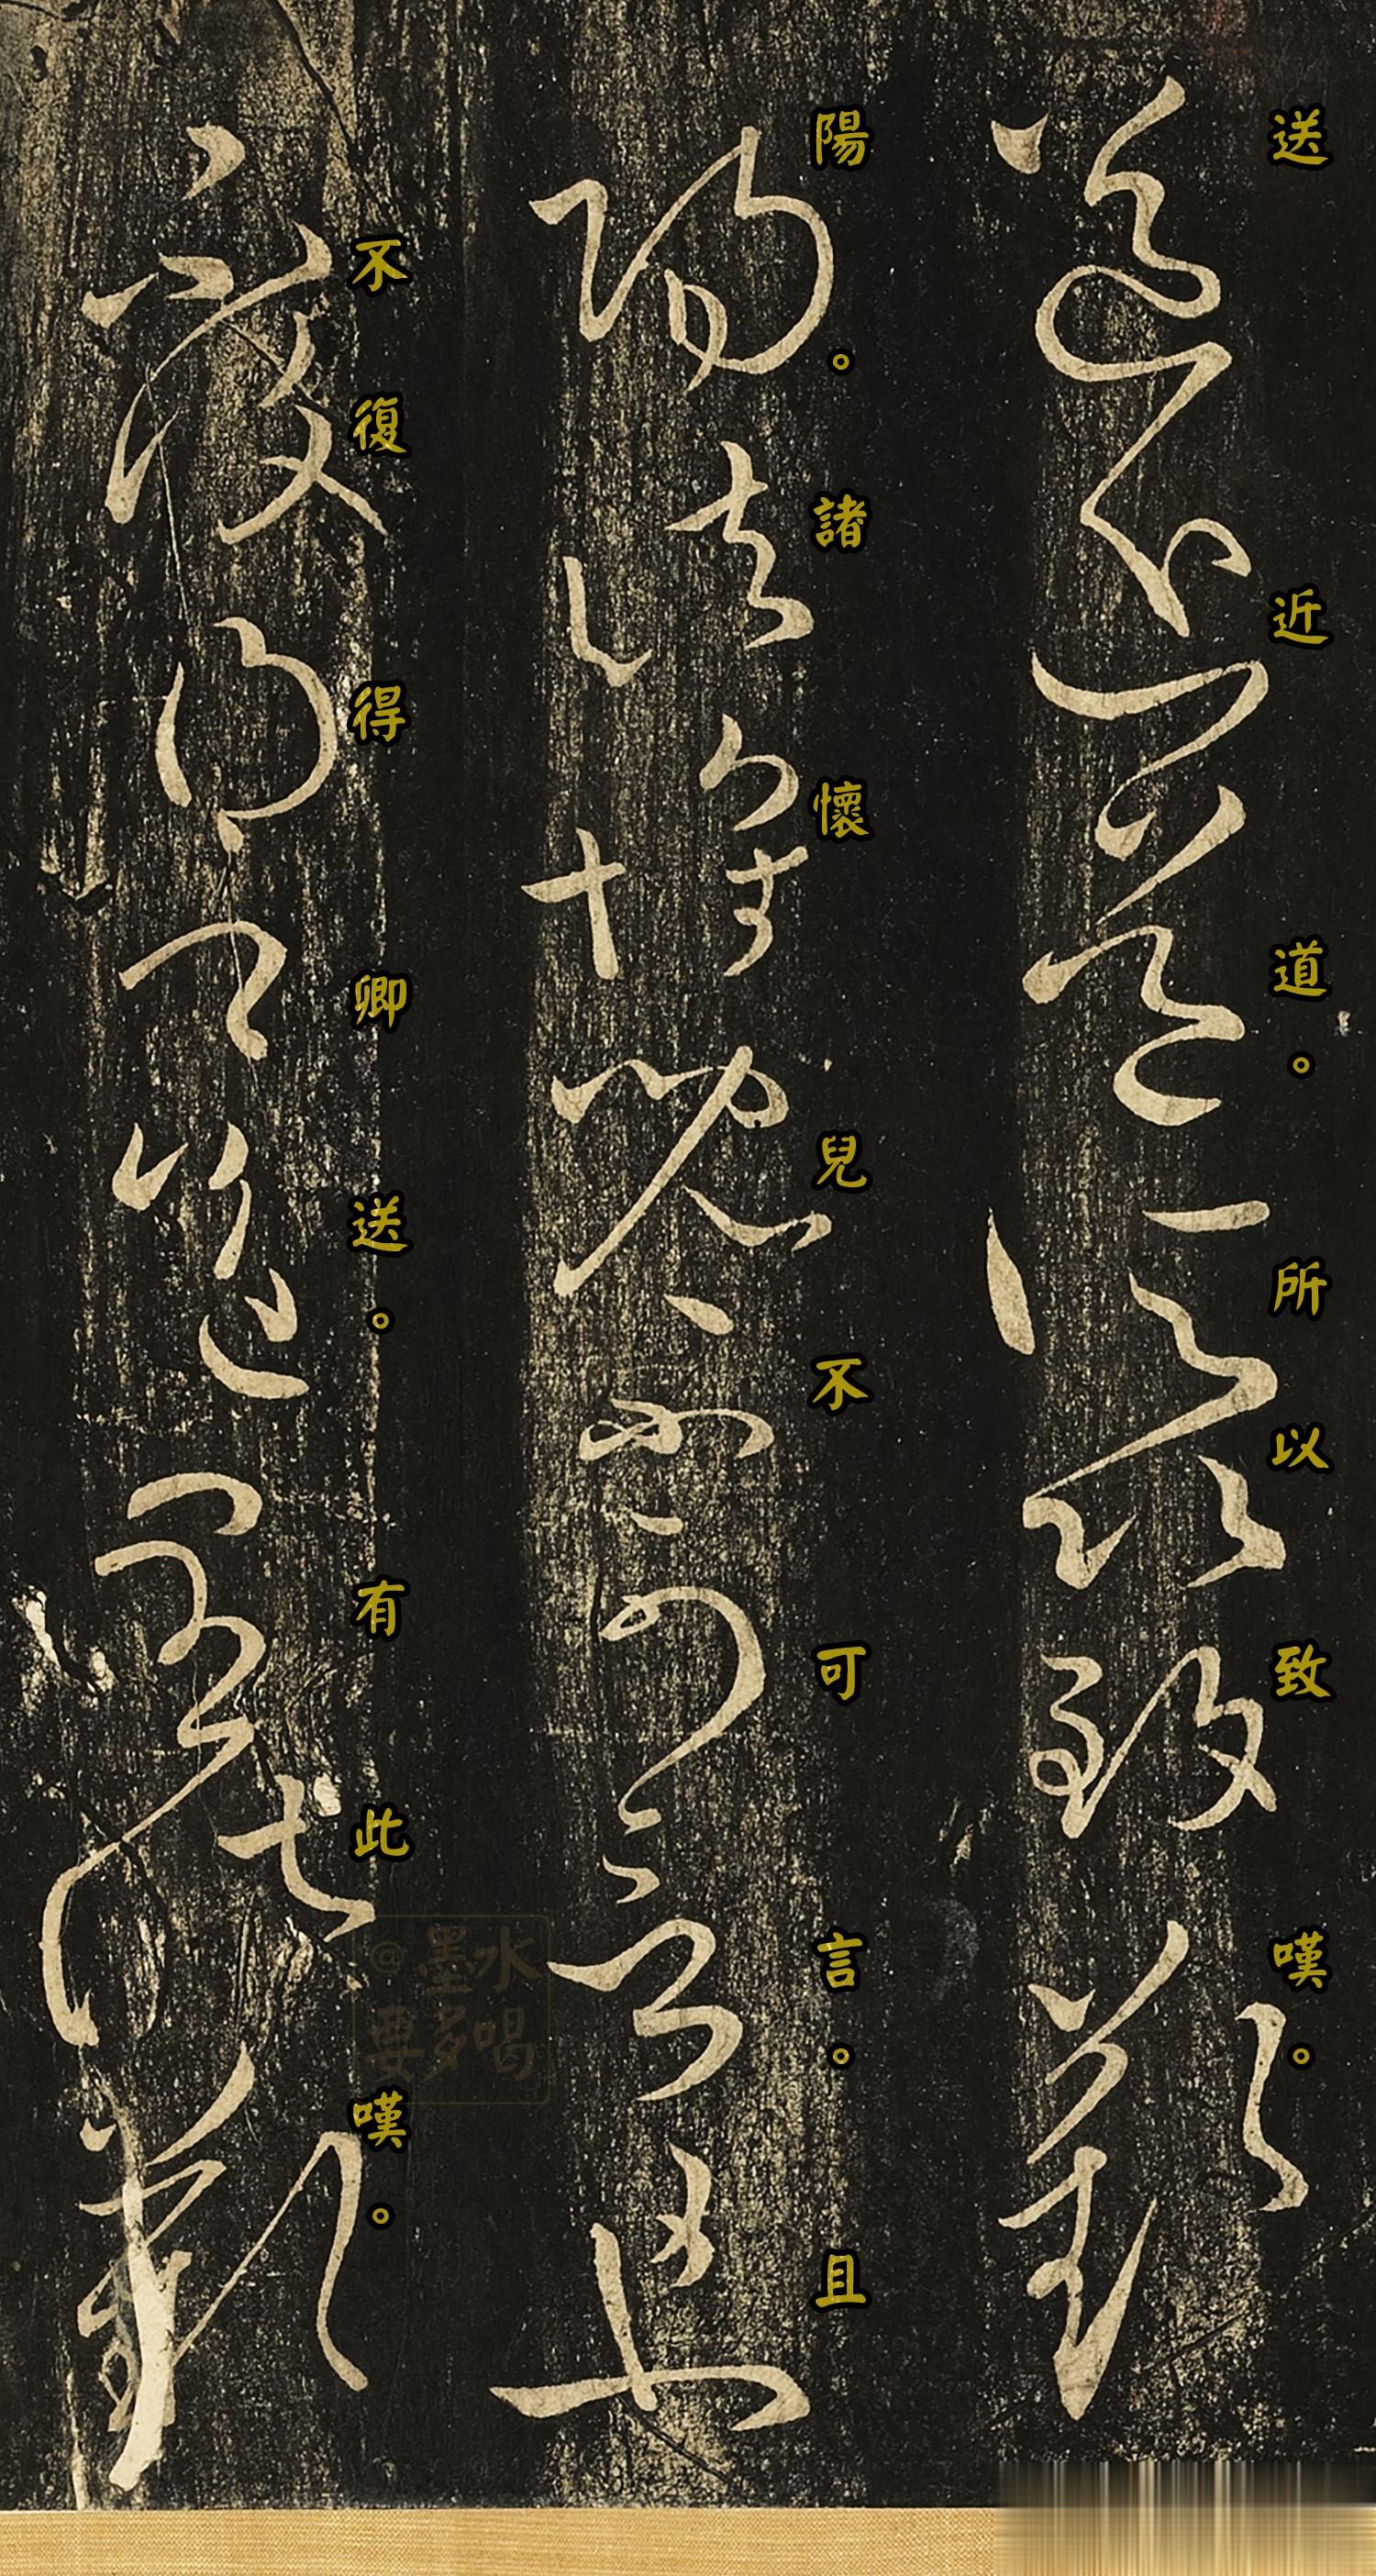 送近道。所以致嘆。
陽。諸懷兒不可言。且
不復得卿送。有此嘆。
@墨水要多喝